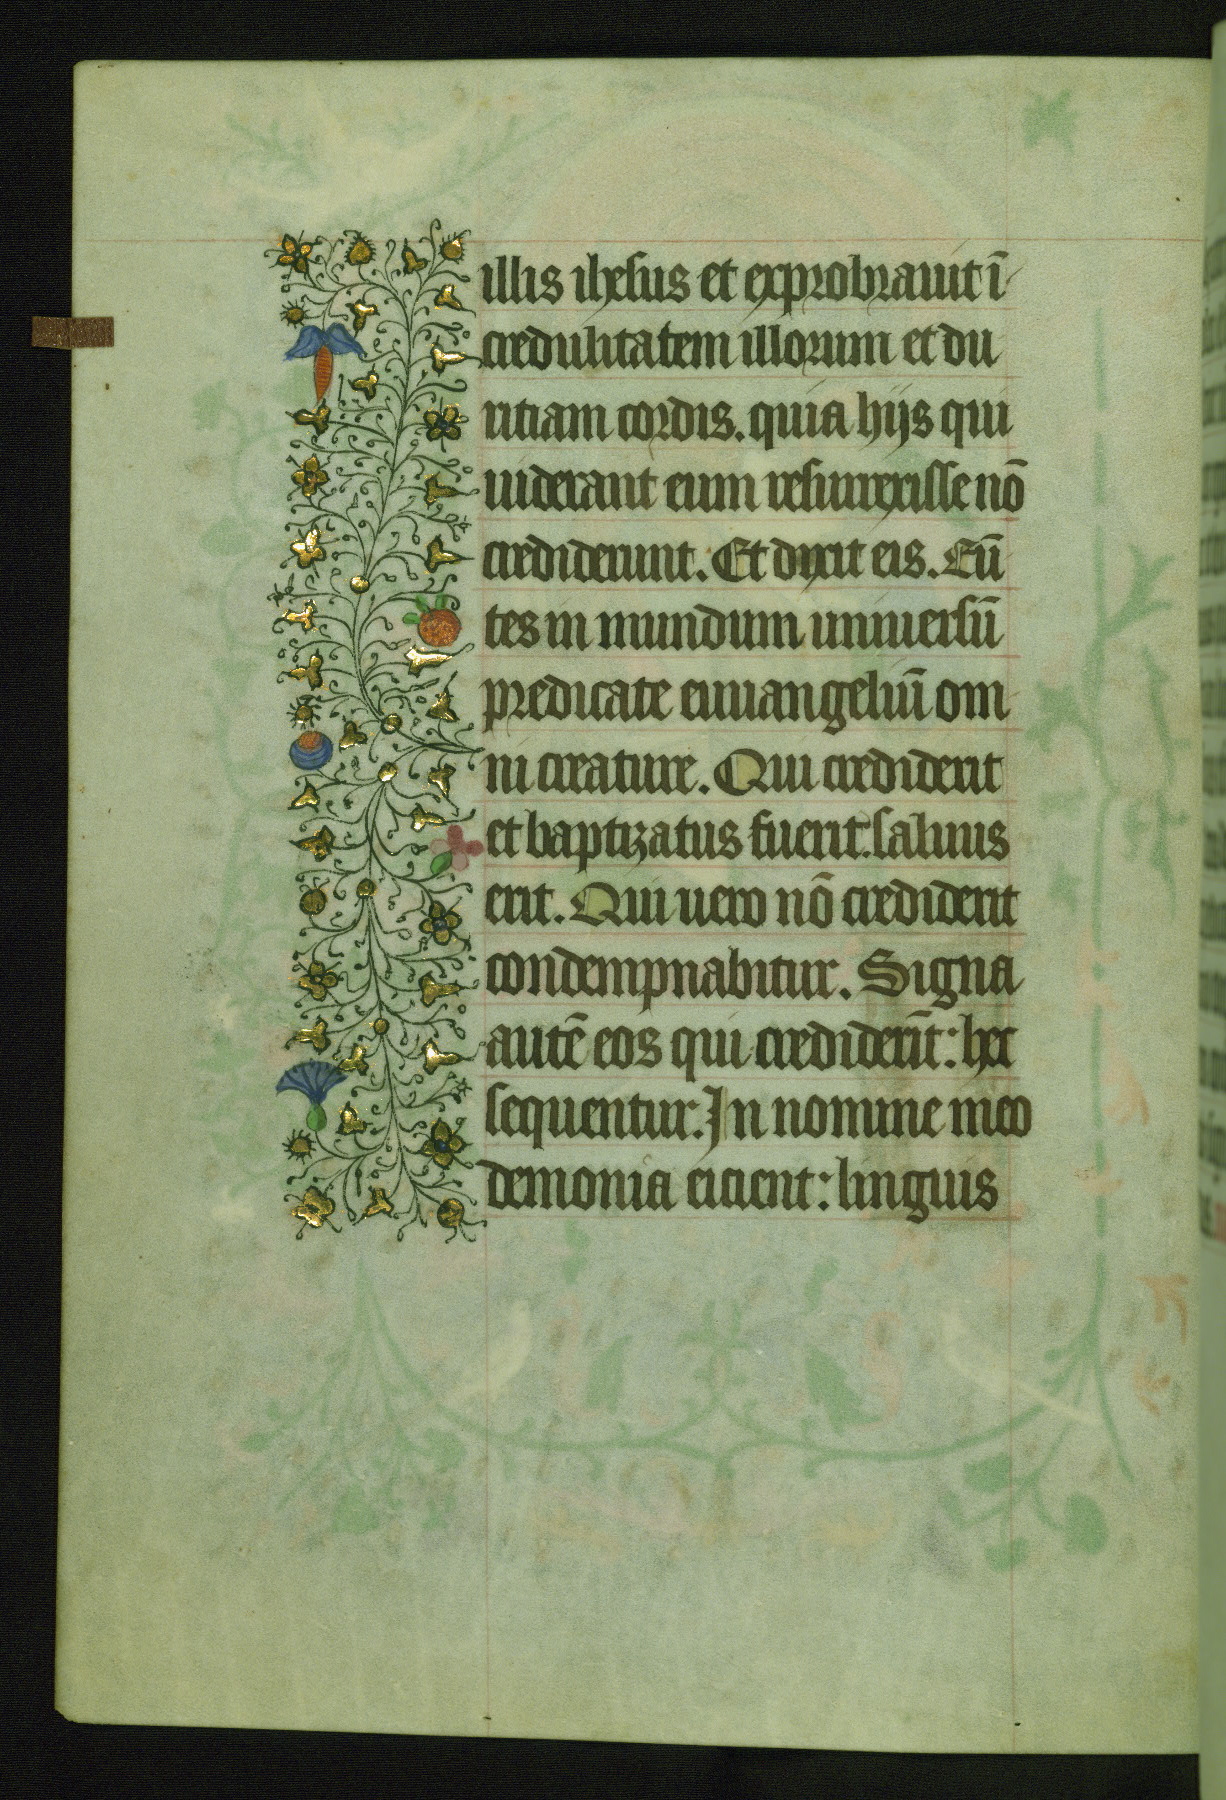 illis ihesus et exprobrauit ī
credulitatem illorum et du
ritiam cordis. quia hijs qui
uiderant eum resurrexisse nō
crediderunt. Et dixit eis. Eū
tes in mundum uniuersū
predicate euuangeliū om
ni creature. Qui crediderit
et baptizatus fuerit. saluus
erit. Qui uero nō crediderit
condempnabitur. Signa
autē eos qui crediderīt: hec
sequentur. In nomine meo
demonia eicient: linguis